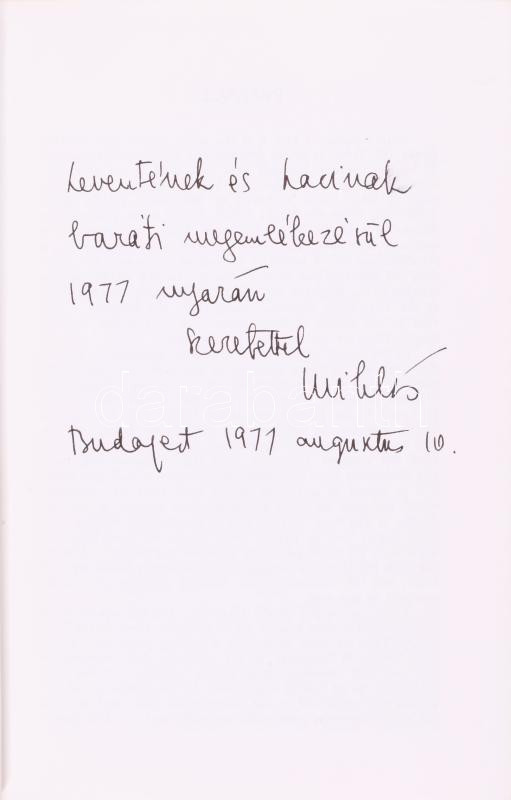 Leventének és Lacinak
baráti megemlékezésül
1977 nyarán
szeretettel
Miklós
darabanth
Budapest 1977 augusztus 10.